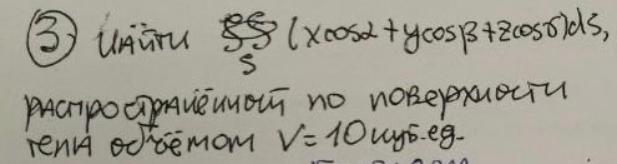 ③ Найти ∯ (xcosα+ycosβ+zcosγ)ds,
S
распространённой по поверхности
тела объёмом V=10 куб.ед.